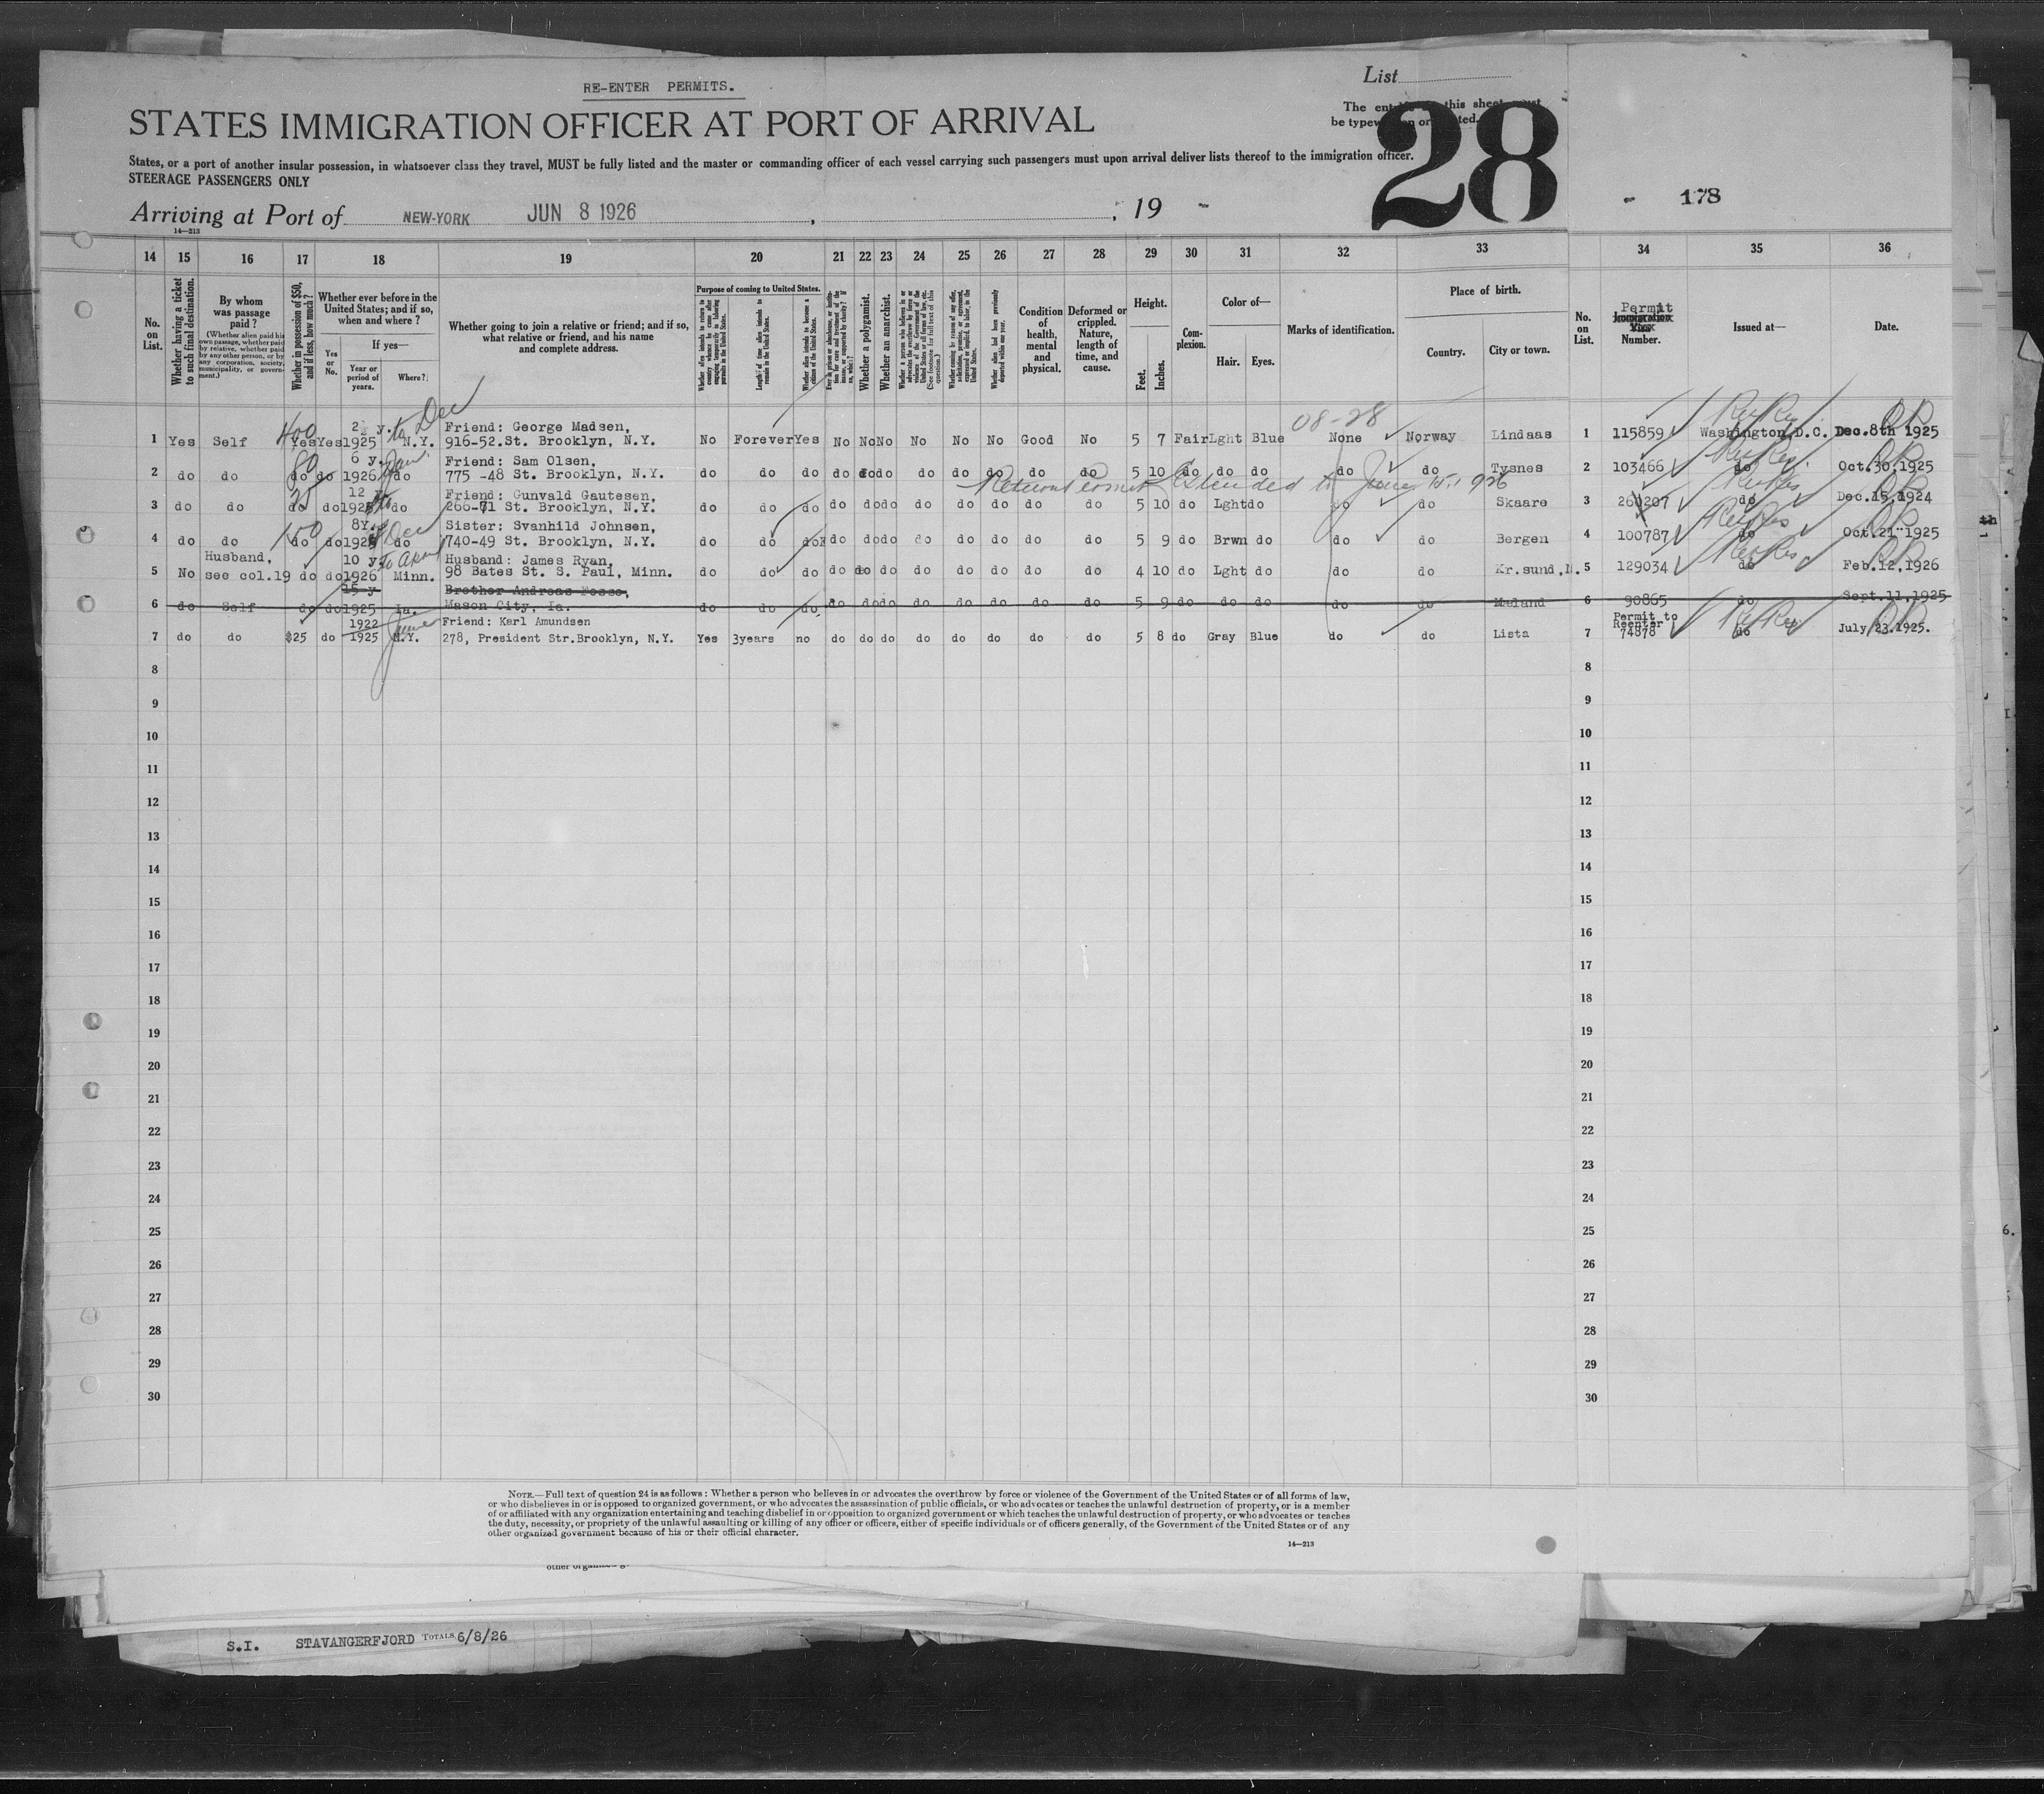 RE-ENTER PERMITS.
List
STATES IMMIGRATION OFFICER AT PORT OF ARRIVAL
The this sheet must
be typew or ted.
28
States, or a port of another insular possession, in whatsoever class they travel, MUST be fully listed and the master or commanding officer of each vessel carrying such passengers must upon arrival deliver lists thereof to the immigration officer.
STEERAGE PASSENGERS ONLY
178
Arriving at Port of NEW-YORK JUN 8 1926 , 19
14—213
14 15 16 17 18 19 20 21 22 23 24 25 26 27 28 29 30 31 32 33 34 35 36
No. on List.
Whether having a ticket to such final destination.
By whom was passage paid?
(Whether alien paid his own passage, whether paid by relative, whether paid by any other person, or by any corporation, society, municipality, or government.)
Whether in possession of $50, and if less, how much?
Whether ever before in the United States; and if so, when and where?
Yes or No.
If yes—
Year or period of years.
Where?
Whether going to join a relative or friend; and if so, what relative or friend, and his name and complete address.
Purpose of coming to United States.
Whether alien intends to return to country whence he came after engaging temporarily in laboring pursuits in the United States.
Length of time alien intends to remain in the United States.
Whether alien intends to become a citizen of the United States.
Whether a polygamist.
Whether an anarchist.
Condition of health, mental and physical.
Deformed or crippled. Nature, length of time, and cause.
Height.
Feet. Inches.
Complexion.
Color of—
Hair. Eyes.
Marks of identification.
Place of birth.
Country. City or town.
No. on List.
Permit
Immigration Visa Number.
Issued at—
Date.
08-28
1 Yes Self 400 Yes Yes 2½ y. 1925 to Dec N.Y. Friend: George Madsen,
916-52.St. Brooklyn, N.Y. No Forever Yes No No No No No No Good No 5 7 Fair Lght Blue None Norway Lindaas 1 115859 Washington,D.C. Dec.8th 1925
2 do do 80 do do 6 y. 1926 Jan. do Friend: Sam Olsen,
775 -48 St. Brooklyn, N.Y. do do do do do do do do do do do 5 10 do do do do do Tysnes 2 103466 do Oct.30,1925
Return Permit Extended to June 15. 1926
3 do do do do 12 do Friend: Gunvald Gautesen,
266-71 St. Brooklyn, N.Y. do do do do do do do do do do do 5 10 do Lght do do do Skaare 3 260207 do Dec.15,1924
4 do do 150 do do 8Y. 1925 Dec do Sister: Svanhild Johnsen,
740-49 St. Brooklyn, N.Y. do do do do do do do do do do do 5 9 do Brwn do do do Bergen 4 100787 do Oct.21 1925
5 No Husband, see col.19 do do 10 y. 1926 to April Minn. Husband: James Ryan,
98 Bates St. S. Paul, Minn. do do do do do do do do do do do 4 10 do Lght do do do Kr.sund,N. 5 129034 do Feb.12,1926
6 do Self do do 15 y 1925 Ia. Brother Andreas Fosso,
Mason City, Ia. do do do do do do do do do do do 5 9 do do do do do Mæland 6 90865 do Sept.11,1925
7 do do $25 do 1922 1925 June N.Y. Friend: Karl Amundsen
278, President Str.Brooklyn, N.Y. Yes 3years no do do do do do do do do 5 8 do Gray Blue do do Lista 7 Permit to Reenter 74878 do July 23.1925.
8 8
9 9
10 10
11 11
12 12
13 13
14 14
15 15
16 16
17 17
18 18
19 19
20 20
21 21
22 22
23 23
24 24
25 25
26 26
27 27
28 28
29 29
30 30
NOTE.—Full text of question 24 is as follows: Whether a person who believes in or advocates the overthrow by force or violence of the Government of the United States or of all forms of law,
or who disbelieves in or is opposed to organized government, or who advocates the assassination of public officials, or who advocates or teaches the unlawful destruction of property, or is a member
of or affiliated with any organization entertaining and teaching disbelief in or opposition to organized government or which teaches the unlawful destruction of property, or who advocates or teaches
the duty, necessity, or propriety of the unlawful assaulting or killing of any officer or officers, either of specific individuals or of officers generally, of the Government of the United States or of any
other organized government because of his or their official character.
14—213
S.I. STAVANGERFJORD TOTALS 6/8/26